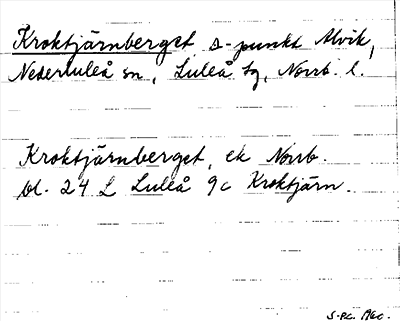 Kroktjärnberget s-punkt Alvik,
Nederluleå sn, Luleå tg, Norrb. l.
Kroktjärnberget, ek Norrb.
bl. 24 L Luleå 9c Kroktjärn.